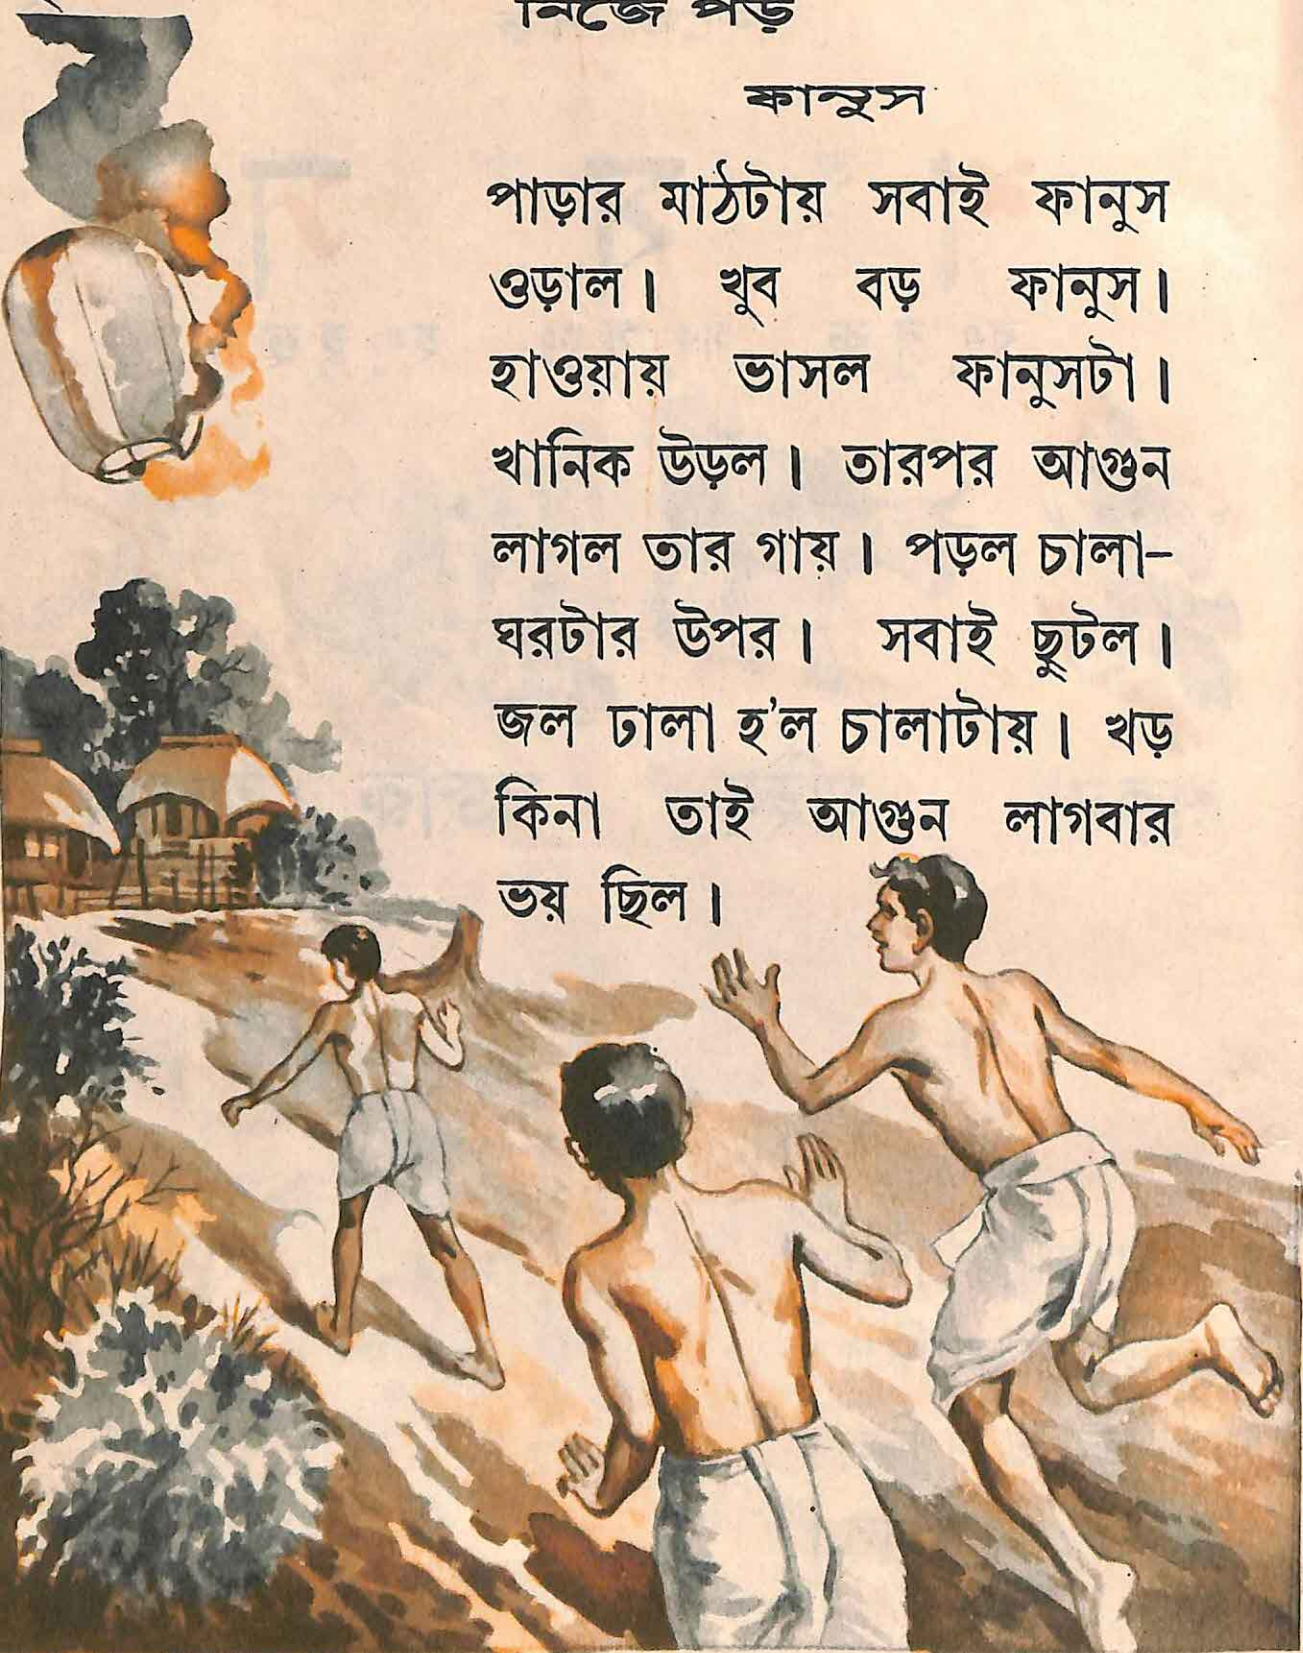 নিজে পড়
ফানুস
পাড়ার মাঠটায় সবাই ফানুস
ওড়াল। খুব বড় ফানুস।
হাওয়ায় ভাসল ফানুসটা।
খানিক উড়ল। তারপর আগুন
লাগল তার গায়। পড়ল চালা-
ঘরটার উপর। সবাই ছুটল।
জল ঢালা হ'ল চালাটায়। খড়
কিনা তাই আগুন লাগবার
ভয় ছিল।